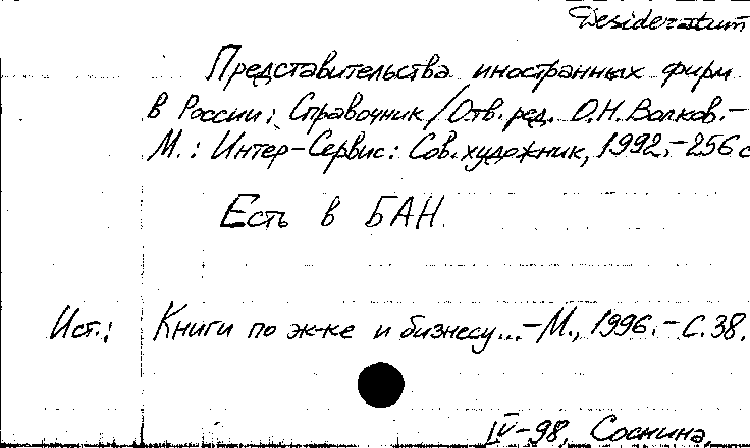 Desideratum
Представительства иностранных фирм
в России: Справочник / Отв. ред. О.Н. Волков.-
М.: Интер-Сервис: Сов. художник, 1992.-256 с
Есть в БАН.
Ист.: Книги по эк-ке и бизнесу...-М., 1996.-С.38.
IV-98, Соснина.